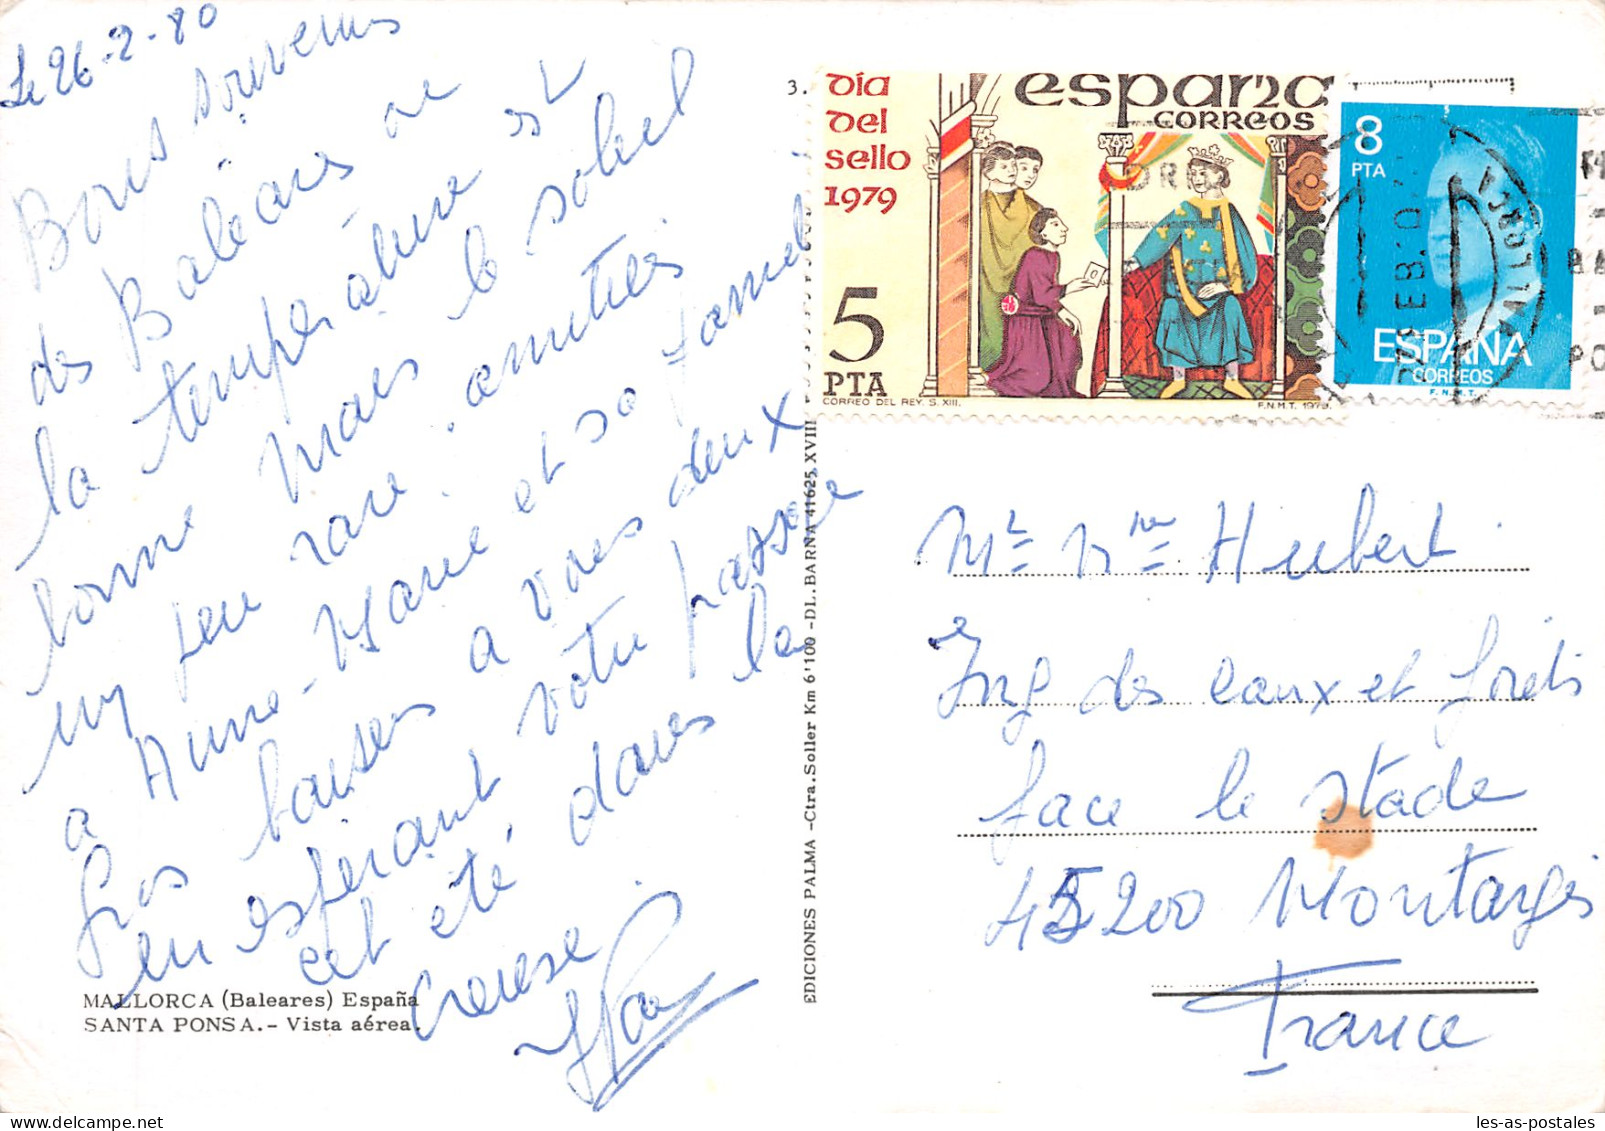 Le 26-2-80
Bons souvenirs
des Baléares ou
la température est
bonne mais le soleil
un peu rare. amitiés
a Anne-Marie et sa famille
Gros baisers a vous deux
en espérant votre passage
cet été dans la
Creuse
MALLORCA (Baleares) España
SANTA PONSA.- Vista aérea.
3.
EDICIONES PALMA -Ctra. Soller Km 6'100 -DL. BARNA 41625 XVIII
día
del
sello
1979
españa
CORREOS
5
PTA
CORREO DEL REY. S. XIII.
F.N.M.T. 1979.
8
PTA
ESPAÑA
CORREOS
F.N.M.T.
Mr Mme Hubert
Ing des eaux et forêts
face le stade
45200 Montargis
France
les-as-postales